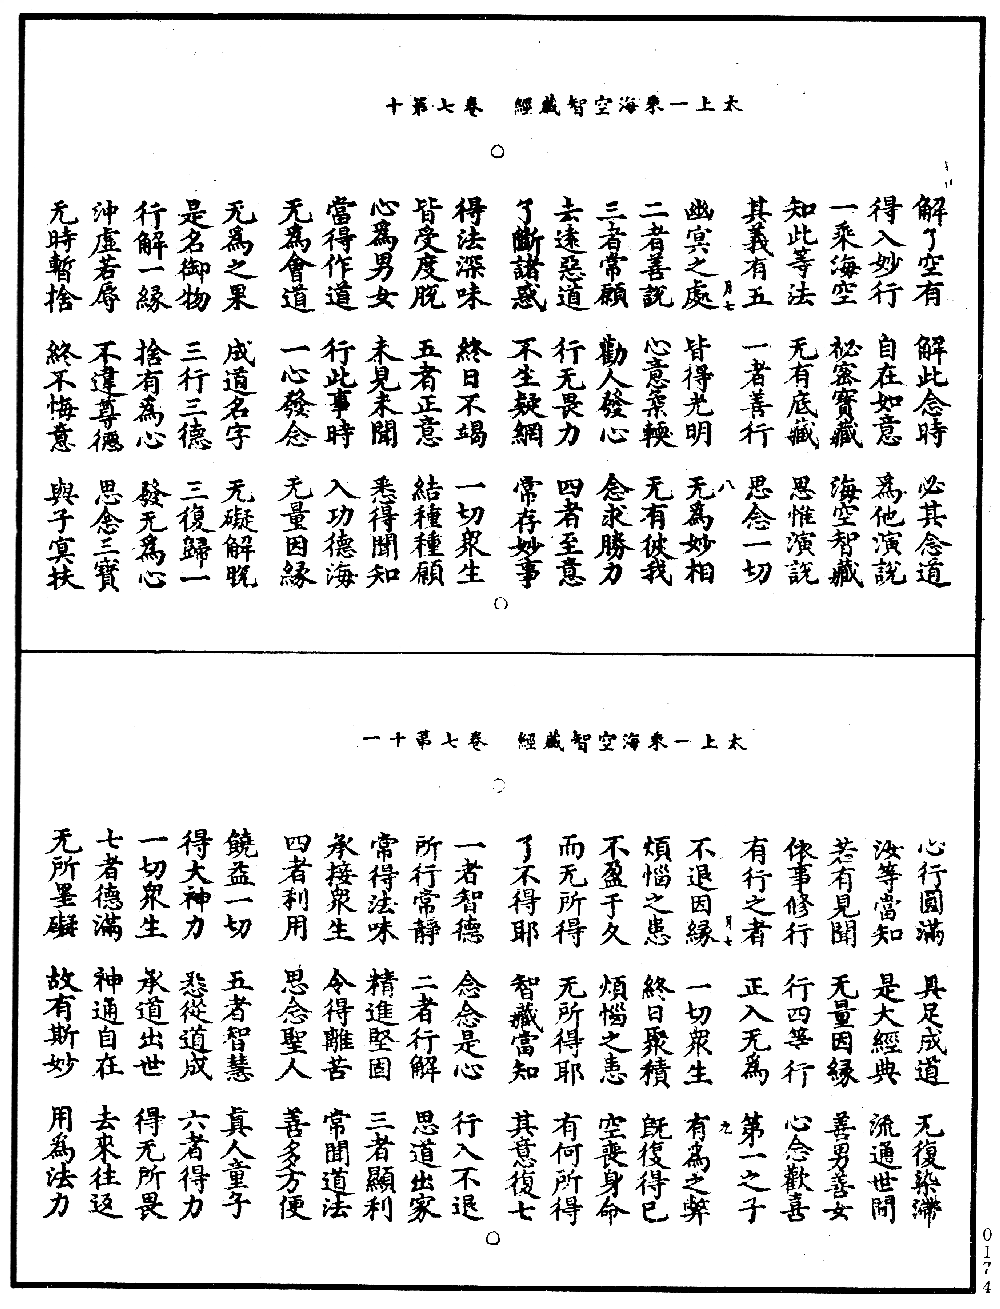 太上一乘海空智藏經　卷七第十
解了空有　解此念時　必其念道
得入妙行　自在如意　為他演說
一乘海空　祕密寶藏　海空智藏
知此等法　无有底藏　思惟演說
其義有五　一者善行　思念一切
月七　八
幽冥之處　皆得光明　无為妙相
二者善說　心意輭　无有彼我
三者常願　勸人發心　念求勝力
去遠惡道　行无畏力　四者至意
了斷諸惑　不生疑網　常存妙事
得法深味　終日不竭　一切眾生
皆受度脫　五者正意　結種種願
心為男女　未見未聞　悉得聞知
當得作道　行此事時　入功德海
无為會道　一心發念　无量因緣
无為之果　成道名字　无礙解脫
是名御物　三行三德　三復歸一
行解一緣　捨有為心　發无為心
沖虛若辱　不違尊德　思念三寶
无時暫捨　終不悔意　與子冥扶
太上一乘海空智藏經　卷七第十一
心行圓滿　具足成道　无復染滯
汝等當知　是大經典　流通世間
若有見聞　无量因緣　善男善女
依事修行　行四等行　心念歡喜
有行之者　正入无為　第一之子
月七　九
不退因緣　一切眾生　有為之弊
煩惱之患　終日聚積　既復得已
不盈于久　煩惱之患　空喪身命
而无所得　无所得耶　有何所得
了不得耶　智藏當知　其意復七
一者智德　念念是心　行入不退
所行常靜　二者行解　思道出家
常得法味　精進堅固　三者顯利
承接眾生　令得離苦　常聞道法
四者利用　思念聖人　善多方便
饒益一切　五者智慧　真人童子
得大神力　悉從道成　六者得力
一切眾生　承道出世　得无所畏
七者德滿　神通自在　去來往返
无所罣礙　故有斯妙　用為法力
0174